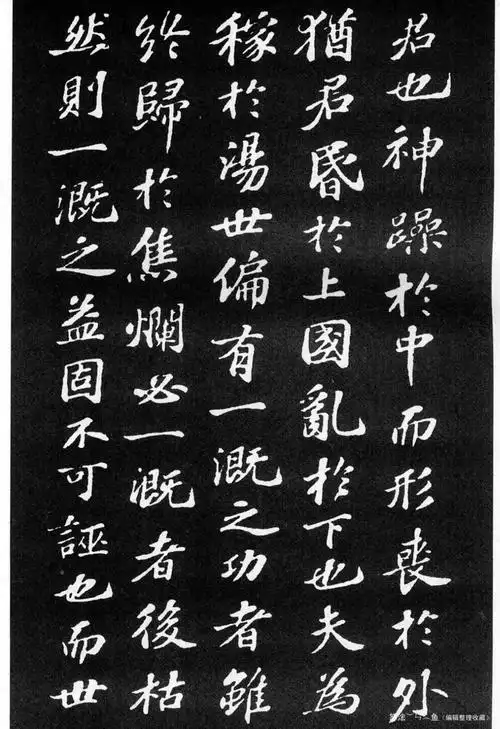 君也神躁於中而形喪於外
猶君昬於上國亂於下也夫為
稼於湯世偏有一溉之功者雖
終歸於焦爛必一溉者後枯
然則一溉之益固不可誣也而世
（编辑整理收藏）